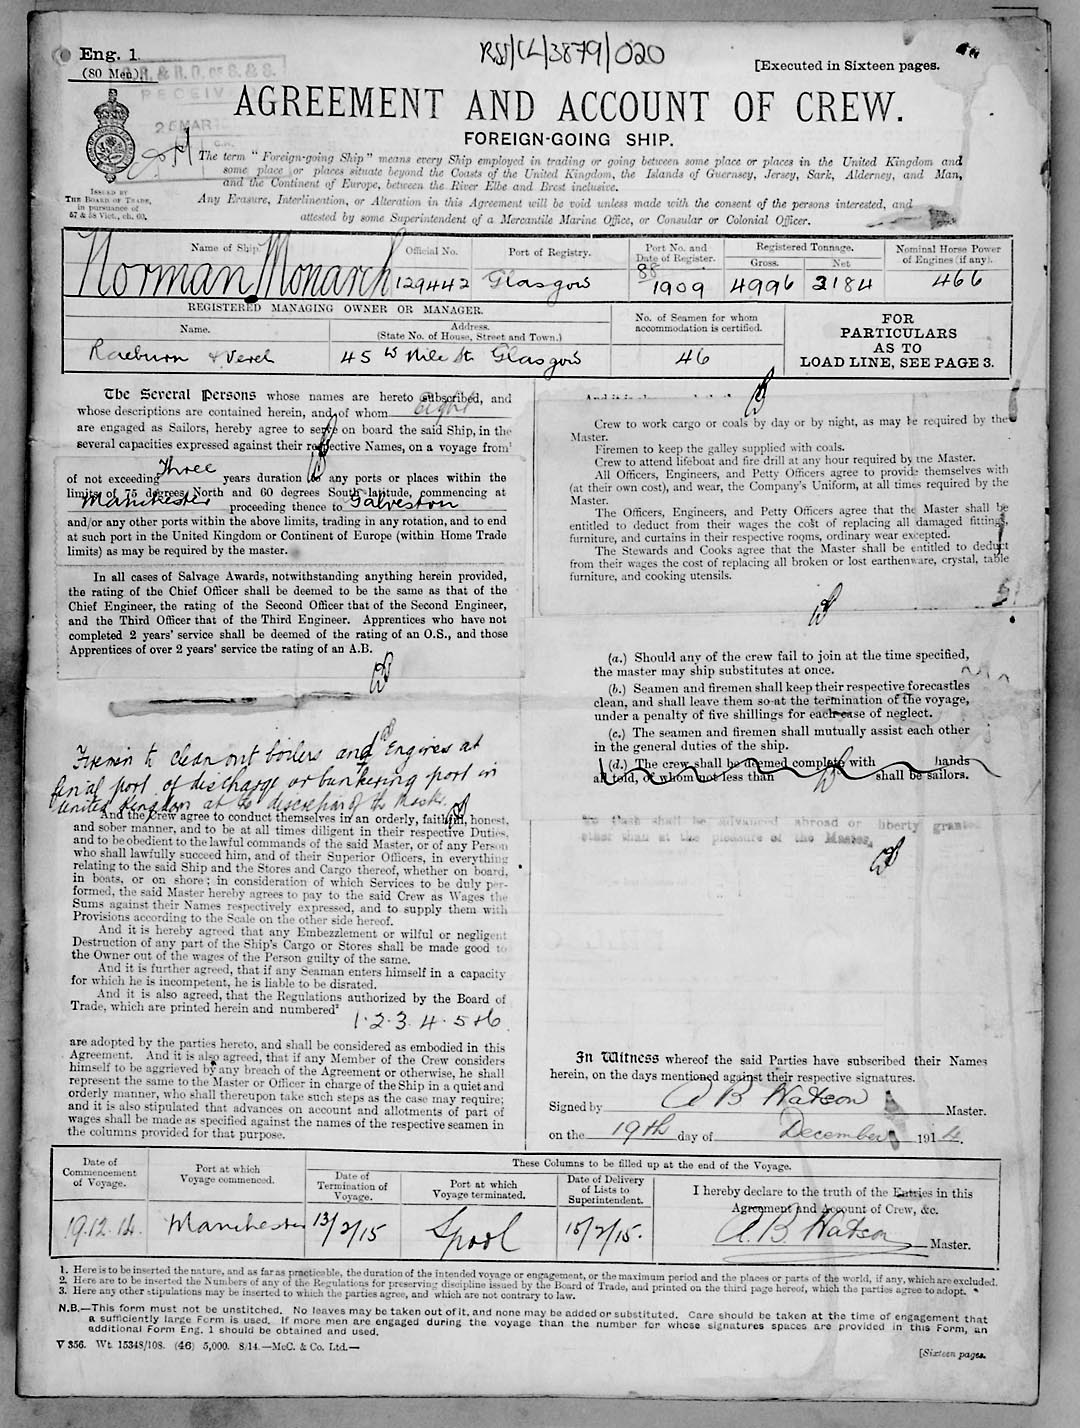 Eng. 1.
(80 Men)
R. & R. D. of S. & S.
RECEIV
25 MAR
RSS/CL/3879/020
[Executed in Sixteen pages.
AGREEMENT AND ACCOUNT OF CREW.
FOREIGN-GOING SHIP.
The term "Foreign-going Ship" means every Ship employed in trading or going between some place or places in the United Kingdom and
some place or places situate beyond the Coasts of the United Kingdom, the Islands of Guernsey, Jersey, Sark, Alderney, and Man,
and the Continent of Europe, between the River Elbe and Brest inclusive.
Any Erasure, Interlineation, or Alteration in this Agreement will be void unless made with the consent of the persons interested, and
attested by some Superintendent of a Mercantile Marine Office, or Consular or Colonial Officer.
ISSUED BY
THE BOARD OF TRADE,
in pursuance of
57 & 58 Vict., ch. 60.
Name of Ship.
Official No.
Port of Registry.
Port No. and
Date of Register.
Registered Tonnage.
Gross.
Net
Nominal Horse Power
of Engines (if any).
Norman Monarch
129442
Glasgow
88
1909
4996
3184
466
REGISTERED MANAGING OWNER OR MANAGER.
Name.
Address.
(State No. of House, Street and Town.)
No. of Seamen for whom
accommodation is certified.
FOR
PARTICULARS
AS TO
LOAD LINE, SEE PAGE 3.
Raeburn & Verel
45 W Nile St Glasgow
46
The Several Persons whose names are hereto subscribed, and
whose descriptions are contained herein, and of whom Eight
are engaged as Sailors, hereby agree to serve on board the said Ship, in the
several capacities expressed against their respective Names, on a voyage from¹
of not exceeding Three years duration to any ports or places within the
limits of 75 degrees North and 60 degrees South latitude, commencing at
Manchester proceeding thence to Galveston
and/or any other ports within the above limits, trading in any rotation, and to end
at such port in the United Kingdom or Continent of Europe (within Home Trade
limits) as may be required by the master.
In all cases of Salvage Awards, notwithstanding anything herein provided,
the rating of the Chief Officer shall be deemed to be the same as that of the
Chief Engineer, the rating of the Second Officer that of the Second Engineer,
and the Third Officer that of the Third Engineer. Apprentices who have not
completed 2 years' service shall be deemed of the rating of an O.S., and those
Apprentices of over 2 years' service the rating of an A.B.
Firemen to clean out boilers and Engines at
final port of discharge or bunkering port in
United Kingdom at the discretion of the Master.
And the Crew agree to conduct themselves in an orderly, faithful, honest,
and sober manner, and to be at all times diligent in their respective Duties,
and to be obedient to the lawful commands of the said Master, or of any Person
who shall lawfully succeed him, and of their Superior Officers, in everything
relating to the said Ship and the Stores and Cargo thereof, whether on board,
in boats, or on shore; in consideration of which Services to be duly per-
formed, the said Master hereby agrees to pay to the said Crew as Wages the
Sums against their Names respectively expressed, and to supply them with
Provisions according to the Scale on the other side hereof.
And it is hereby agreed that any Embezzlement or wilful or negligent
Destruction of any part of the Ship's Cargo or Stores shall be made good to
the Owner out of the wages of the Person guilty of the same.
And it is further agreed, that if any Seaman enters himself in a capacity
for which he is incompetent, he is liable to be disrated.
And it is also agreed, that the Regulations authorized by the Board of
Trade, which are printed herein and numbered²
1·2·3·4·5 & 6
are adopted by the parties hereto, and shall be considered as embodied in this
Agreement. And it is also agreed, that if any Member of the Crew considers
himself to be aggrieved by any breach of the Agreement or otherwise, he shall
represent the same to the Master or Officer in charge of the Ship in a quiet and
orderly manner, who shall thereupon take such steps as the case may require;
and it is also stipulated that advances on account and allotments of part of
wages shall be made as specified against the names of the respective seamen in
the columns provided for that purpose.
Crew to work cargo or coals by day or by night, as may be required by the
Master.
Firemen to keep the galley supplied with coals.
Crew to attend lifeboat and fire drill at any hour required by the Master.
All Officers, Engineers, and Petty Officers agree to provide themselves with
(at their own cost), and wear, the Company's Uniform, at all times required by the
Master.
The Officers, Engineers, and Petty Officers agree that the Master shall be
entitled to deduct from their wages the cost of replacing all damaged fittings,
furniture, and curtains in their respective rooms, ordinary wear excepted.
The Stewards and Cooks agree that the Master shall be entitled to deduct
from their wages the cost of replacing all broken or lost earthenware, crystal, table
furniture, and cooking utensils.
(a.) Should any of the crew fail to join at the time specified,
the master may ship substitutes at once.
(b.) Seamen and firemen shall keep their respective forecastles
clean, and shall leave them so at the termination of the voyage,
under a penalty of five shillings for each case of neglect.
(c.) The seamen and firemen shall mutually assist each other
in the general duties of the ship.
(d.) The crew shall be deemed complete with hands
all told, of whom not less than shall be sailors.
No Cash shall be advanced abroad or liberty granted
other than at the pleasure of the Master.
In Witness whereof the said Parties have subscribed their Names
herein, on the days mentioned against their respective signatures.
Signed by A B Watson Master.
on the 19th day of December 1914.
Date of
Commencement
of Voyage.
Port at which
Voyage commenced.
These Columns to be filled up at the end of the Voyage.
Date of
Termination of
Voyage.
Port at which
Voyage terminated.
Date of Delivery
of Lists to
Superintendent.
I hereby declare to the truth of the Entries in this
Agreement and Account of Crew, &c.
19.12.14.
Manchester
13/2/15
Lpool
15/2/15.
A. B Watson Master.
1. Here is to be inserted the nature, and as far as practicable, the duration of the intended voyage or engagement, or the maximum period and the places or parts of the world, if any, which are excluded.
2. Here are to be inserted the Numbers of any of the Regulations for preserving discipline issued by the Board of Trade, and printed on the third page hereof, which the parties agree to adopt.
3. Here any other stipulations may be inserted to which the parties agree, and which are not contrary to law.
N.B.—This form must not be unstitched. No leaves may be taken out of it, and none may be added or substituted. Care should be taken at the time of engagement that
a sufficiently large Form is used. If more men are engaged during the voyage than the number for whose signatures spaces are provided in this Form, an
additional Form Eng. 1 should be obtained and used.
V 356. Wt. 15348/108. (46) 5,000. 8/14.—McC. & Co. Ltd.—
[Sixteen pages.